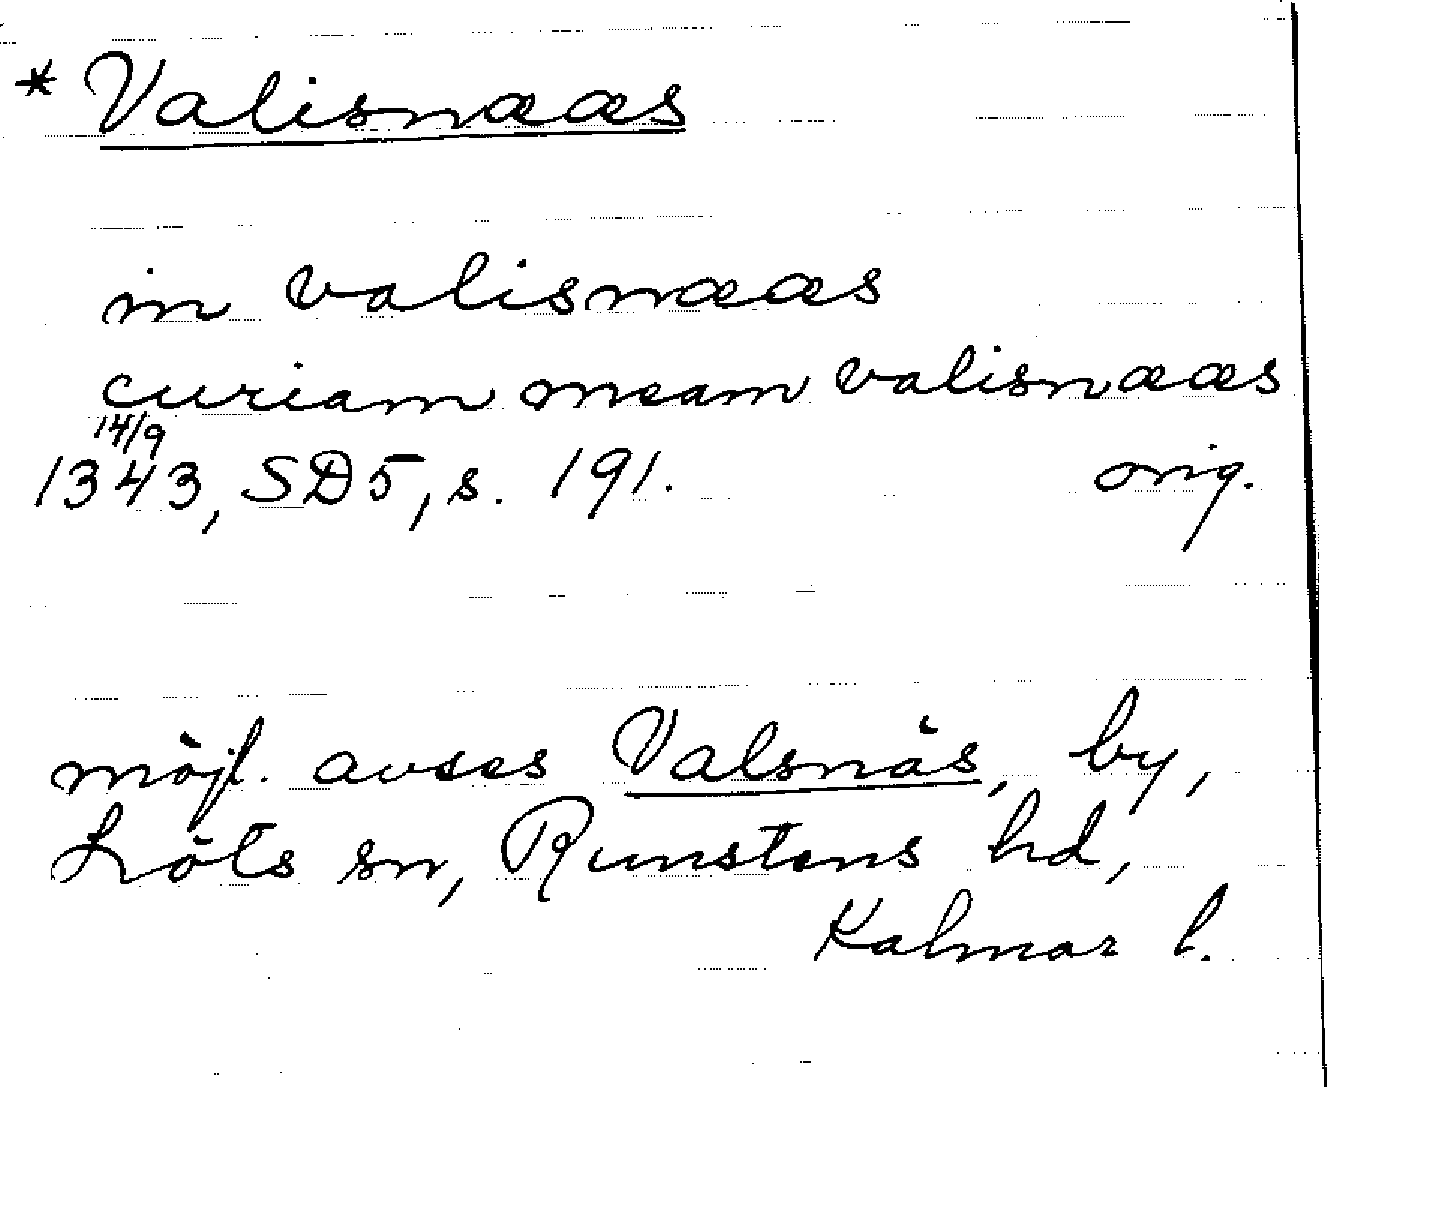 * Valisnææs
in valisnææs
curiam meam valisnææs
14/9
1343, SD5, s. 191. orig.
möjl. avses Valsnäs, by,
Löts sn, Runstens hd,
Kalmar l.